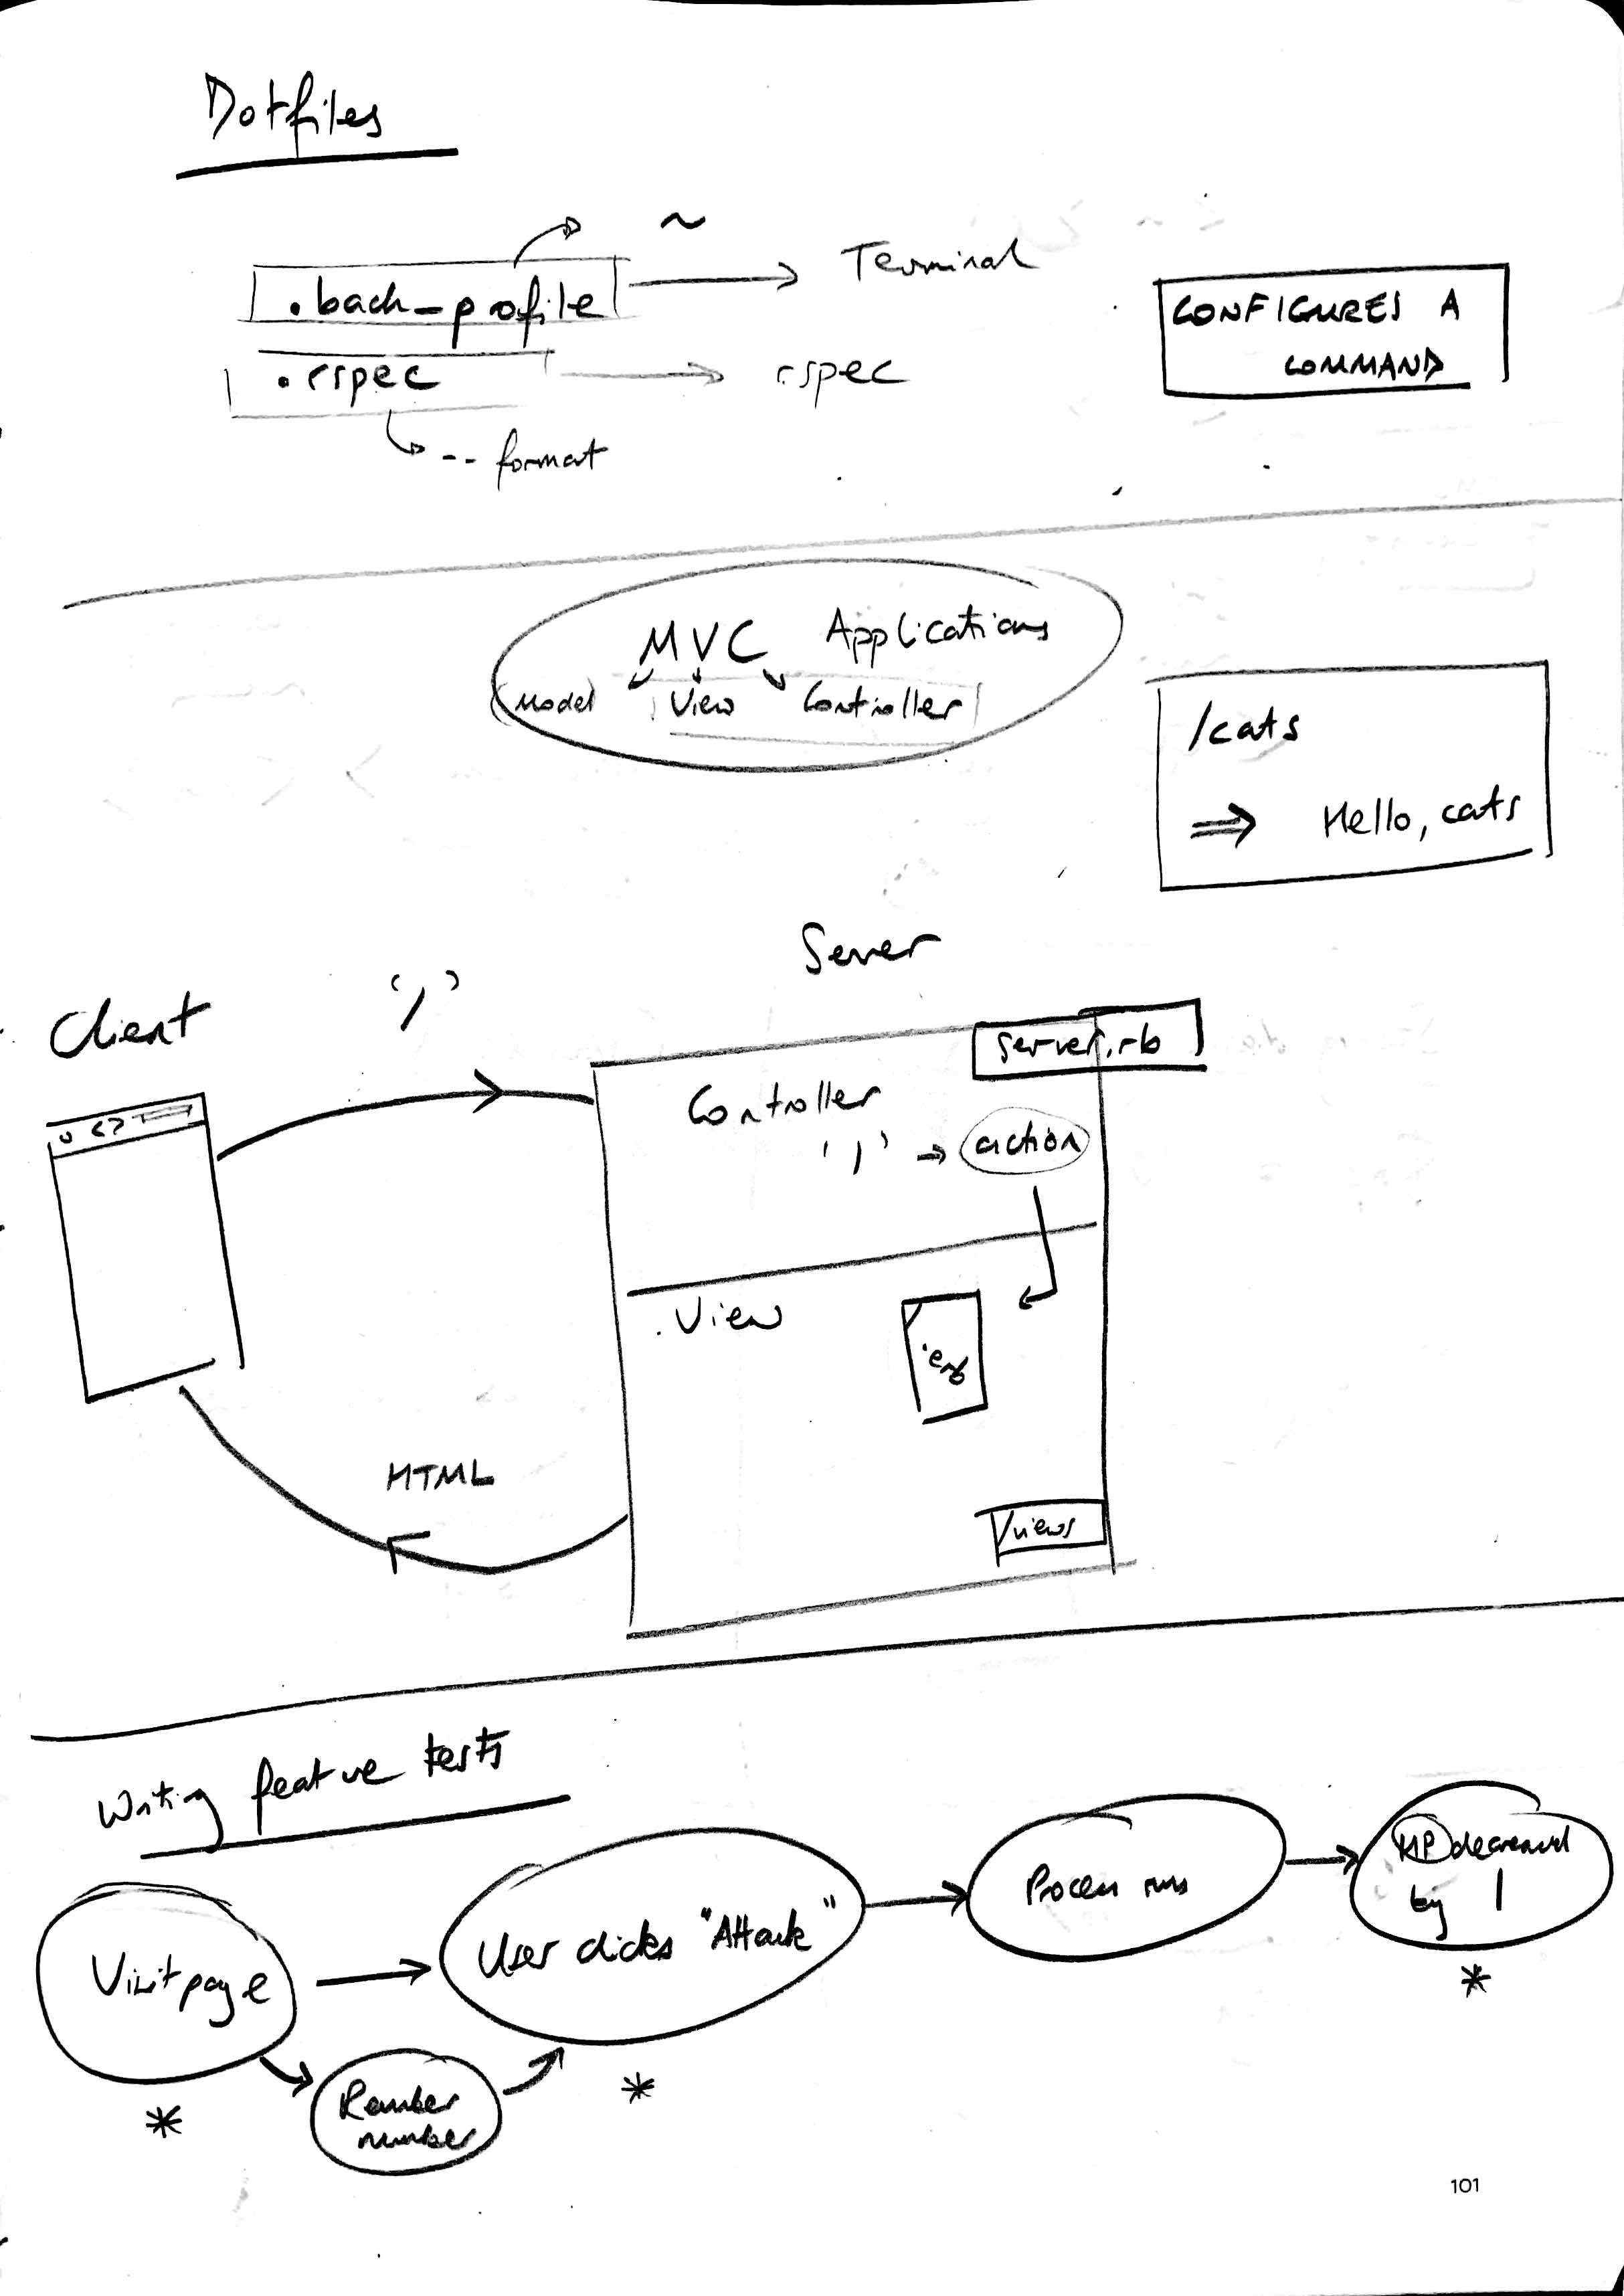 Dotfiles
~
.bach_profile
Terminal
CONFIGURES A
COMMAND
.rspec
rspec
-- format
MVC Applications
Model View Controller
/cats
⇒ Hello, cats
Server
Client
'/'
server.rb
Controller
'/' ⇒ action
.View
.erb
HTML
/views
Writing feature tests
Visit page
User clicks "Attack"
Process runs
HP decreased
by 1
*
*
*
number
101